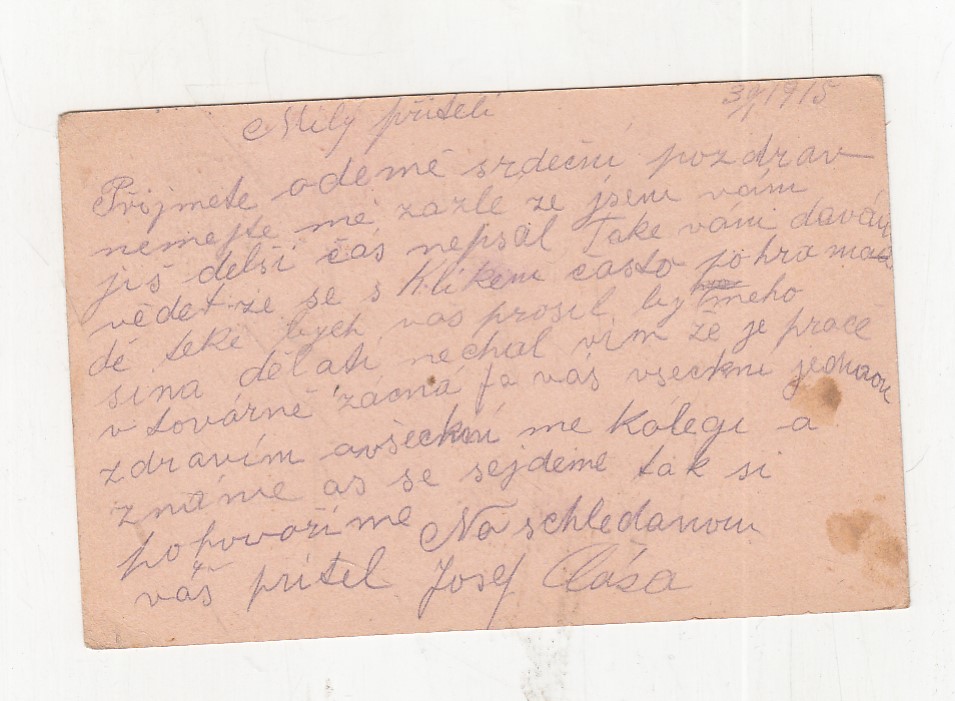 3/9 1915
Milý příteli
Přijmete odemě srdečni pozdrav
nemejte mě zazlé že jsem vám
jiš delši čás nepsal Take vám davám
vědet že se s Klikem často pohroma
dě teke bych vás prosil by meho
sina dělati nechal vim že je prace
v továrně zácná Ja váš všeckni jednou
zdravím a všeckni me kolegi a
známe as se sejdeme tak si
pohovoříme Na schledanou
váš přitel Josef